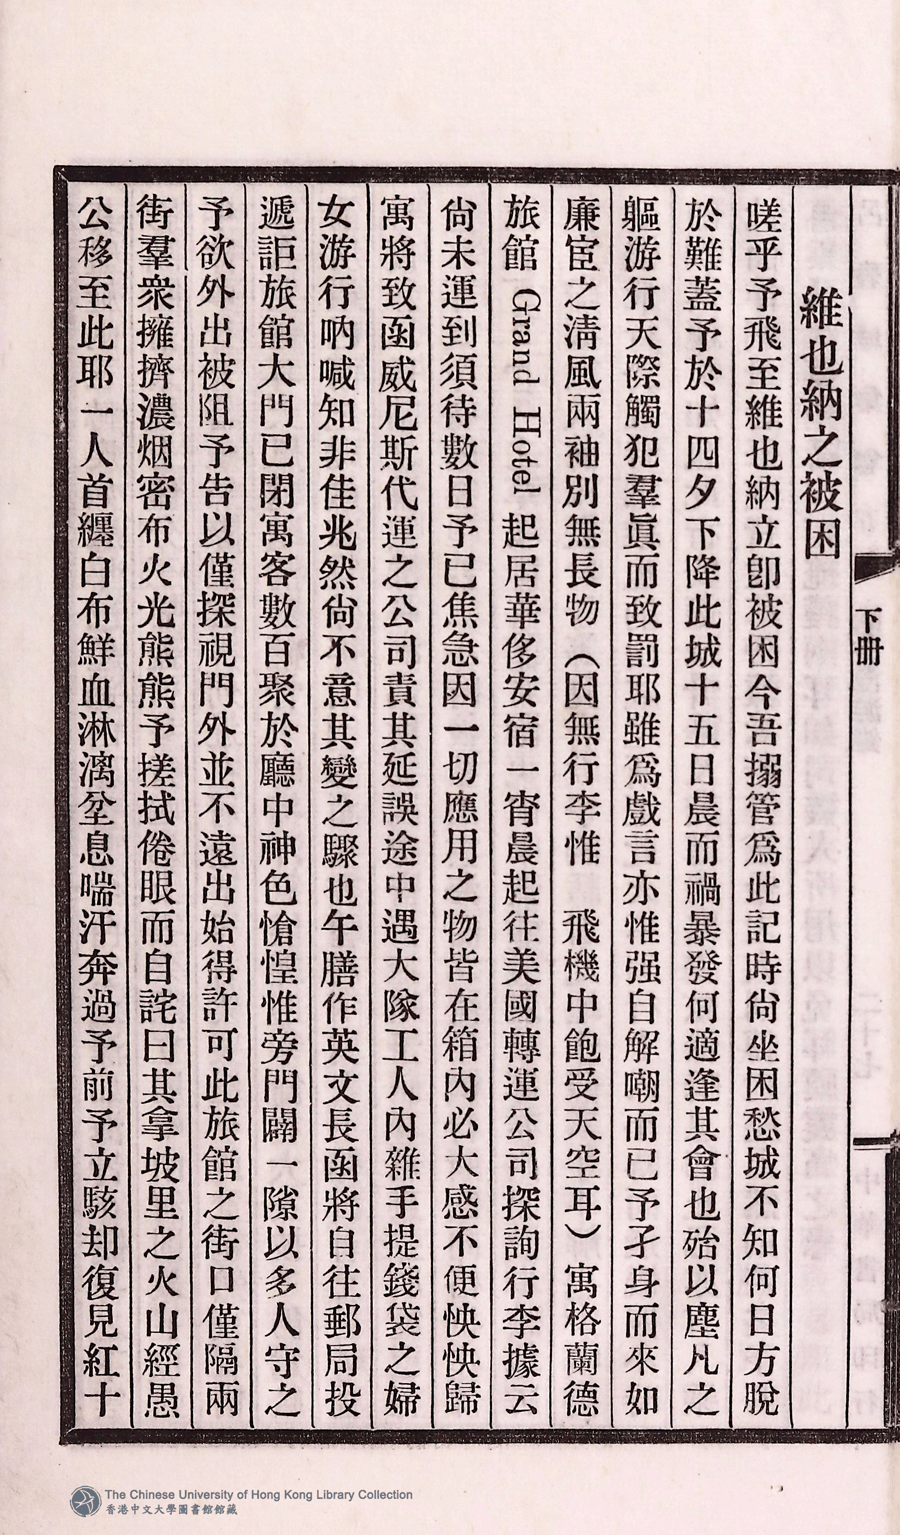 下冊
維也納之被困
嗟乎予飛至維也納立卽被困今吾搦管爲此記時尙坐困愁城不知何日方脫
於難蓋予於十四夕下降此城十五日晨而禍暴發何適逢其會也殆以塵凡之
軀游行天際觸犯羣眞而致罰耶雖爲戲言亦惟强自解嘲而已予孑身而來如
廉宦之淸風兩袖別無長物（因無行李惟飛機中飽受天空耳）寓格蘭德
旅館 Grand Hotel 起居華侈安宿一宵晨起往美國轉運公司探詢行李據云
尙未運到須待數日予已焦急因一切應用之物皆在箱內必大感不便怏怏歸
寓將致函威尼斯代運之公司責其延誤途中遇大隊工人內雜手提錢袋之婦
女游行吶喊知非佳兆然尙不意其變之驟也午膳作英文長函將自往郵局投
遞詎旅館大門已閉寓客數百聚於廳中神色愴惶惟旁門闢一隙以多人守之
予欲外出被阻予告以僅探視門外並不遠出始得許可此旅館之街口僅隔兩
街羣衆擁擠濃烟密布火光熊熊予搓拭倦眼而自詫曰其拿坡里之火山經愚
公移至此耶一人首纏白布鮮血淋漓坌息喘汗奔過予前予立駭却復見紅十
The Chinese University of Hong Kong Library Collection
香港中文大學圖書館館藏